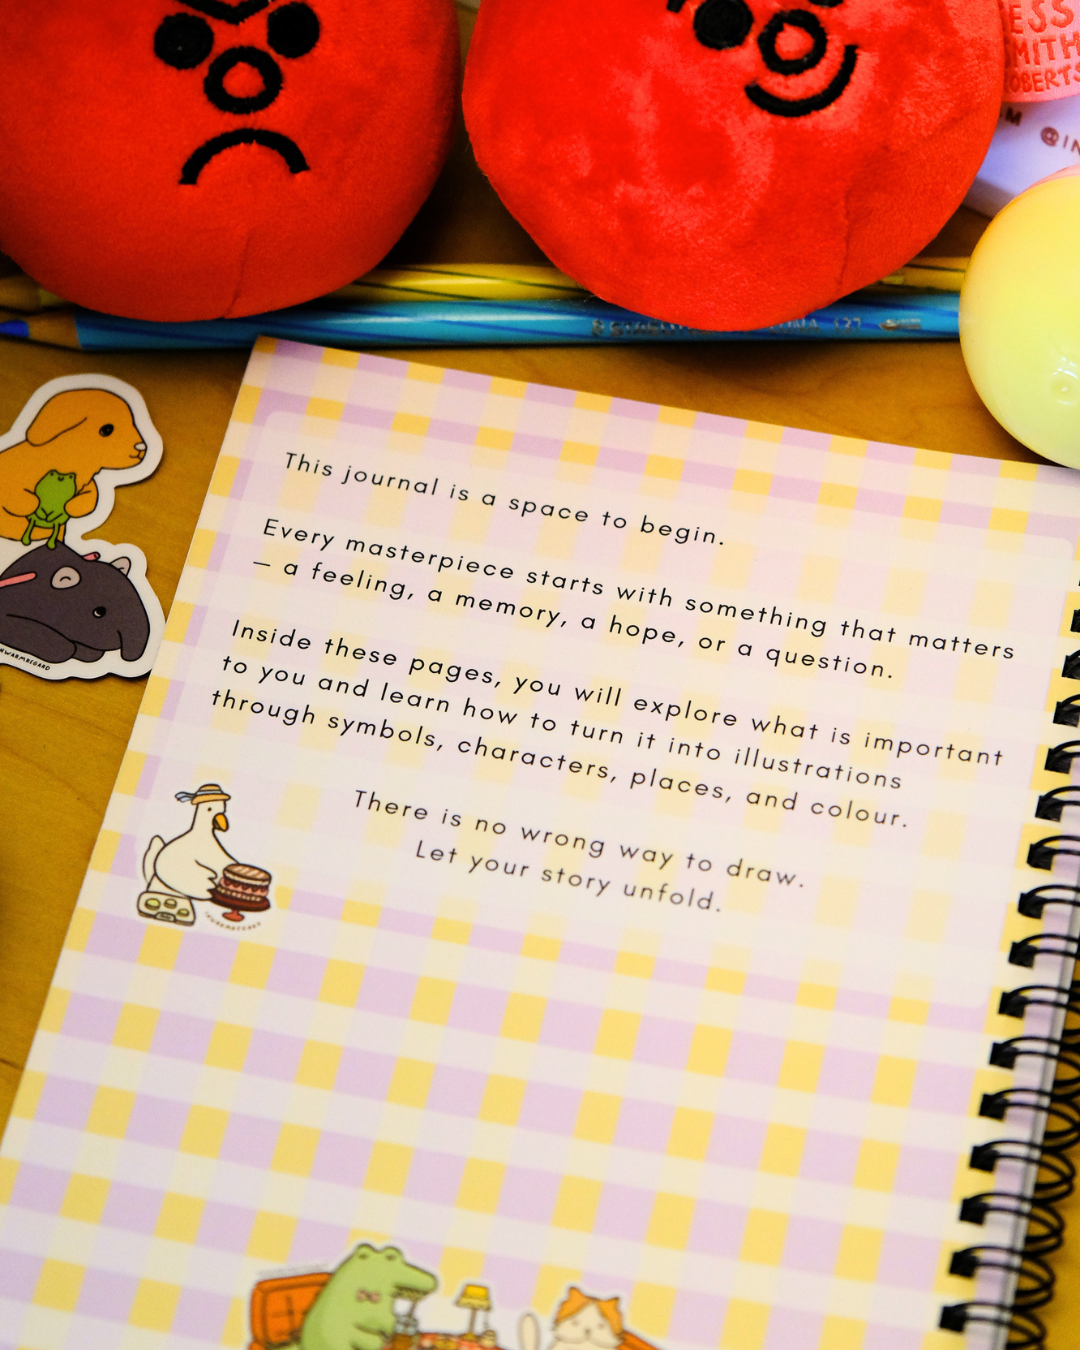 ESS
SMITH
ROBERTS
M @IN
This journal is a space to begin.
Every masterpiece starts with something that matters
– a feeling, a memory, a hope, or a question.
Inside these pages, you will explore what is important
to you and learn how to turn it into illustrations
through symbols, characters, places, and colour.
There is no wrong way to draw.
Let your story unfold.